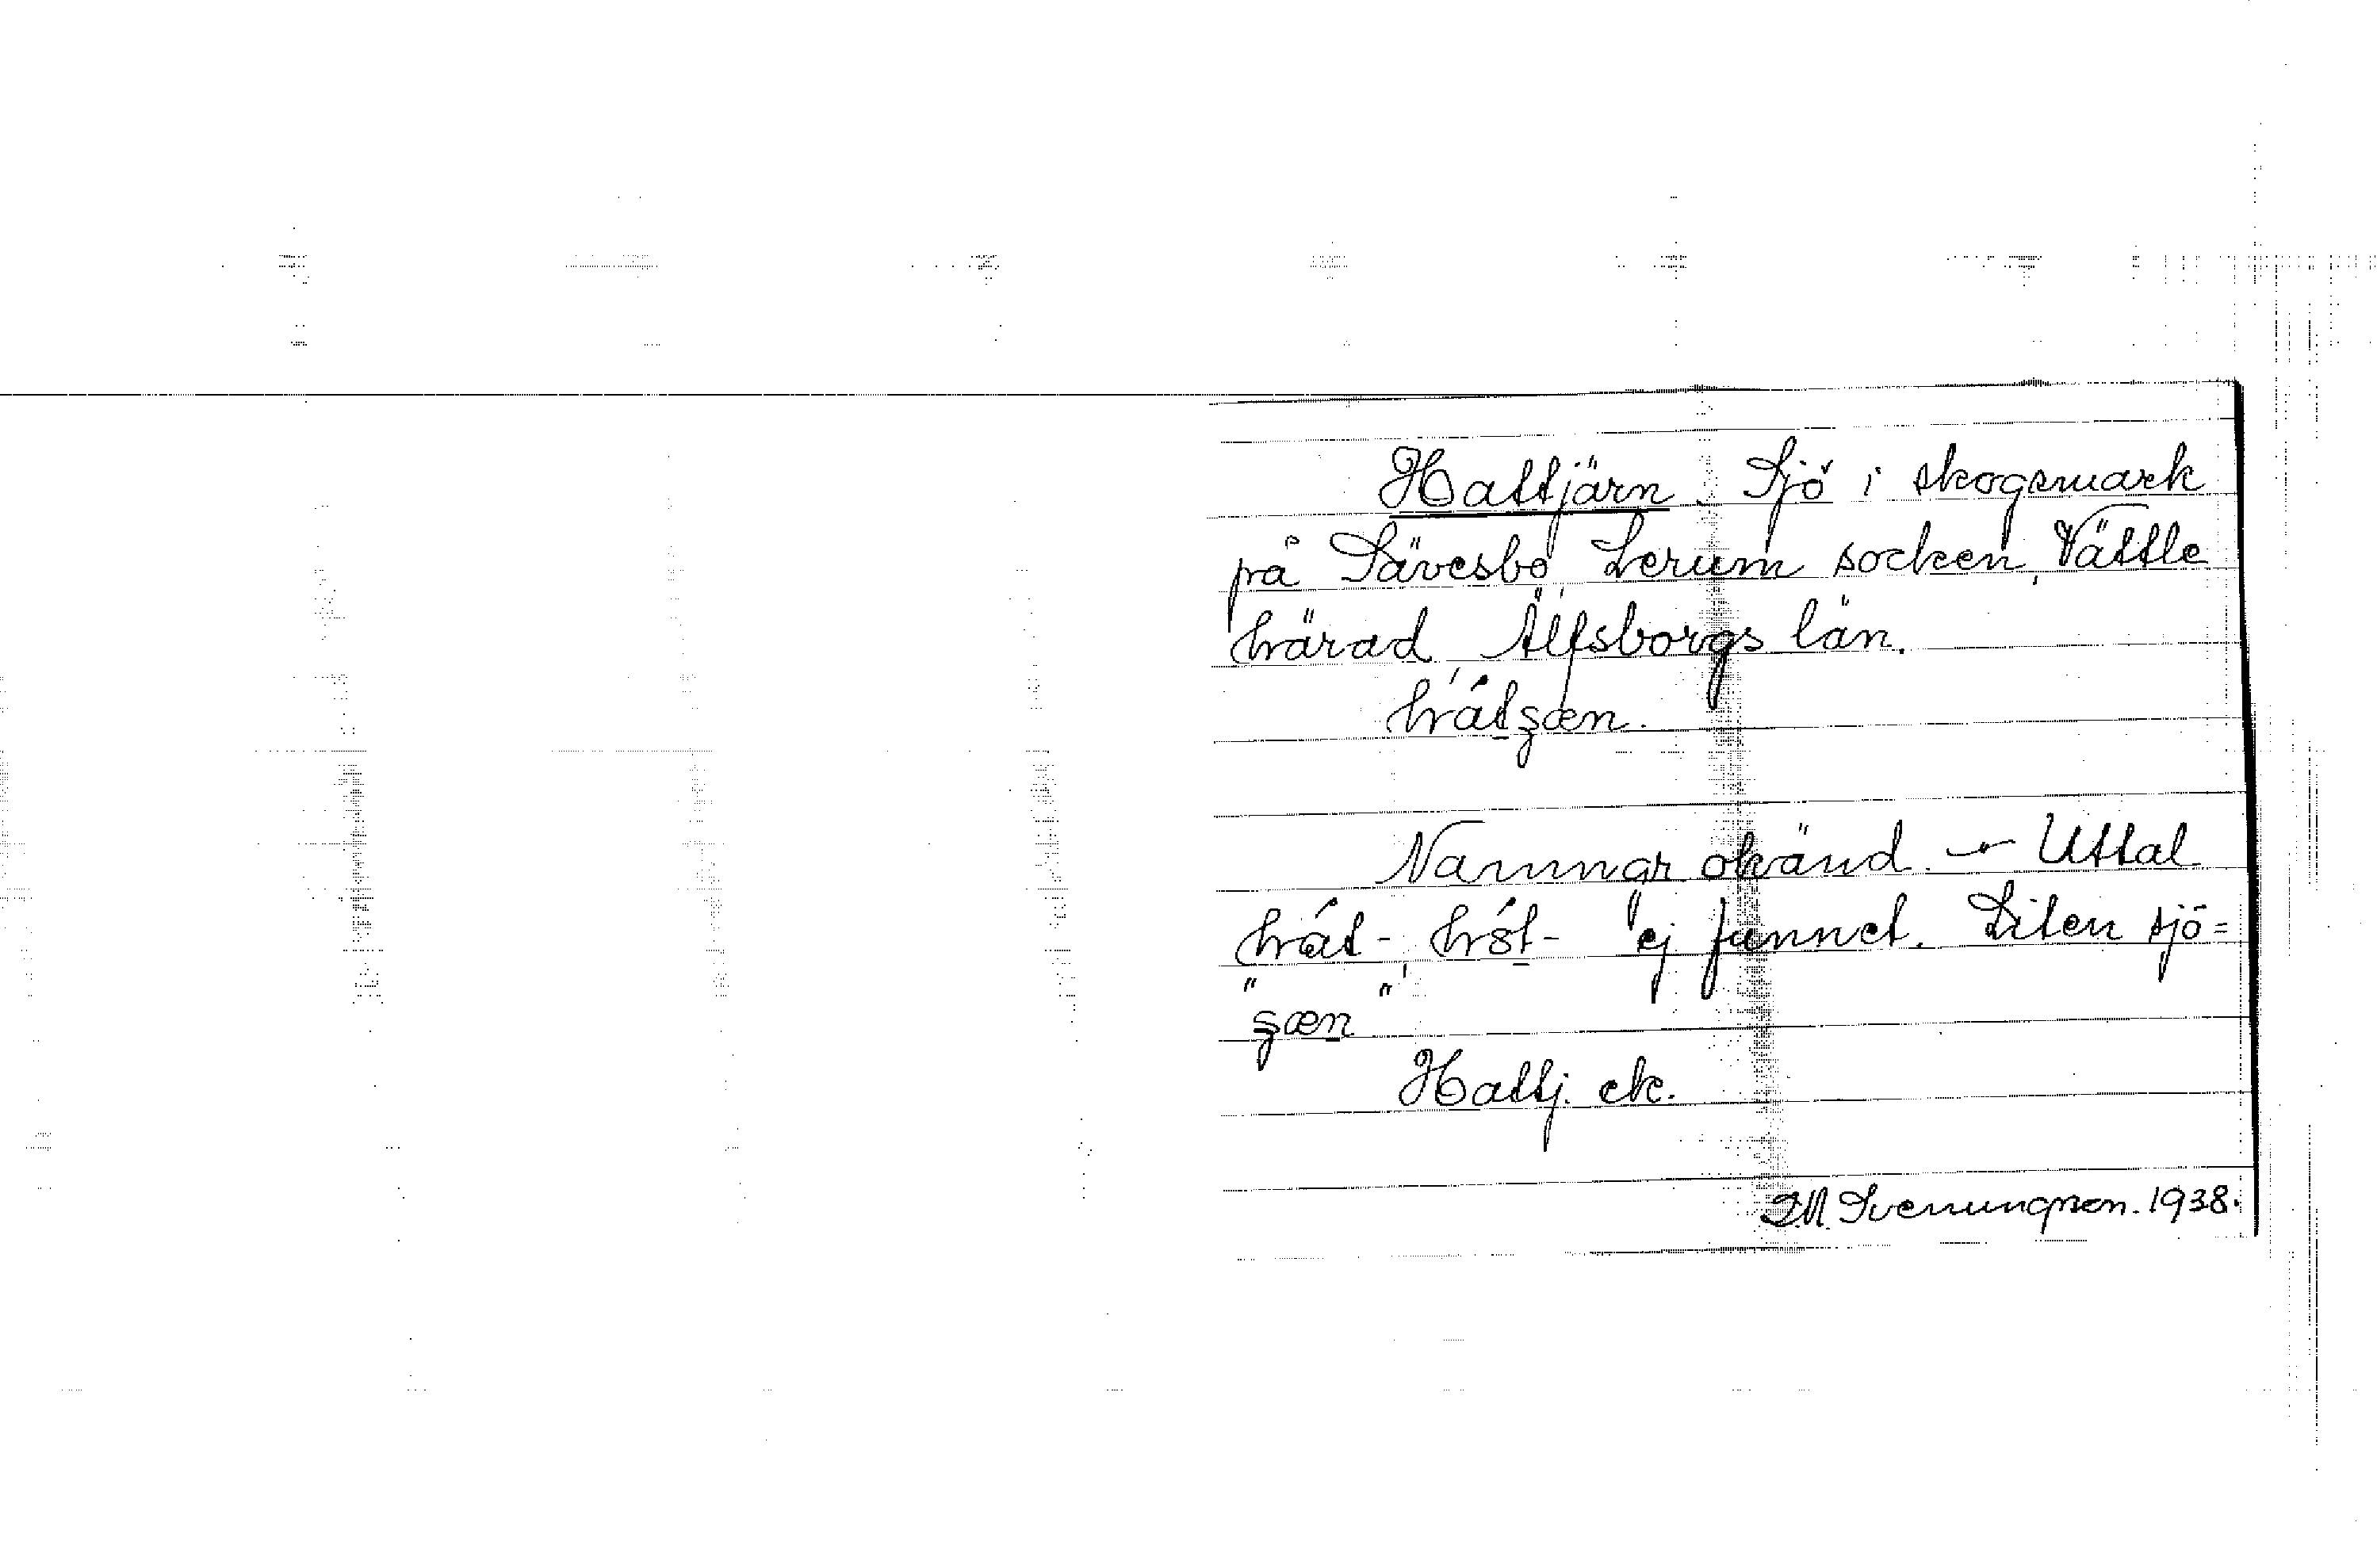 Hattjärn. Sjö i skogsmark
på Sävesbo, Lerum socken, Vättle
härad, Älfsborgs län.
hátʂæn.
Namngr okänd. — Uttal
hát-, hát- ej funnet. Liten sjö =
" "
ʂæn
Hattj. ek.
Svenungson. 1938.